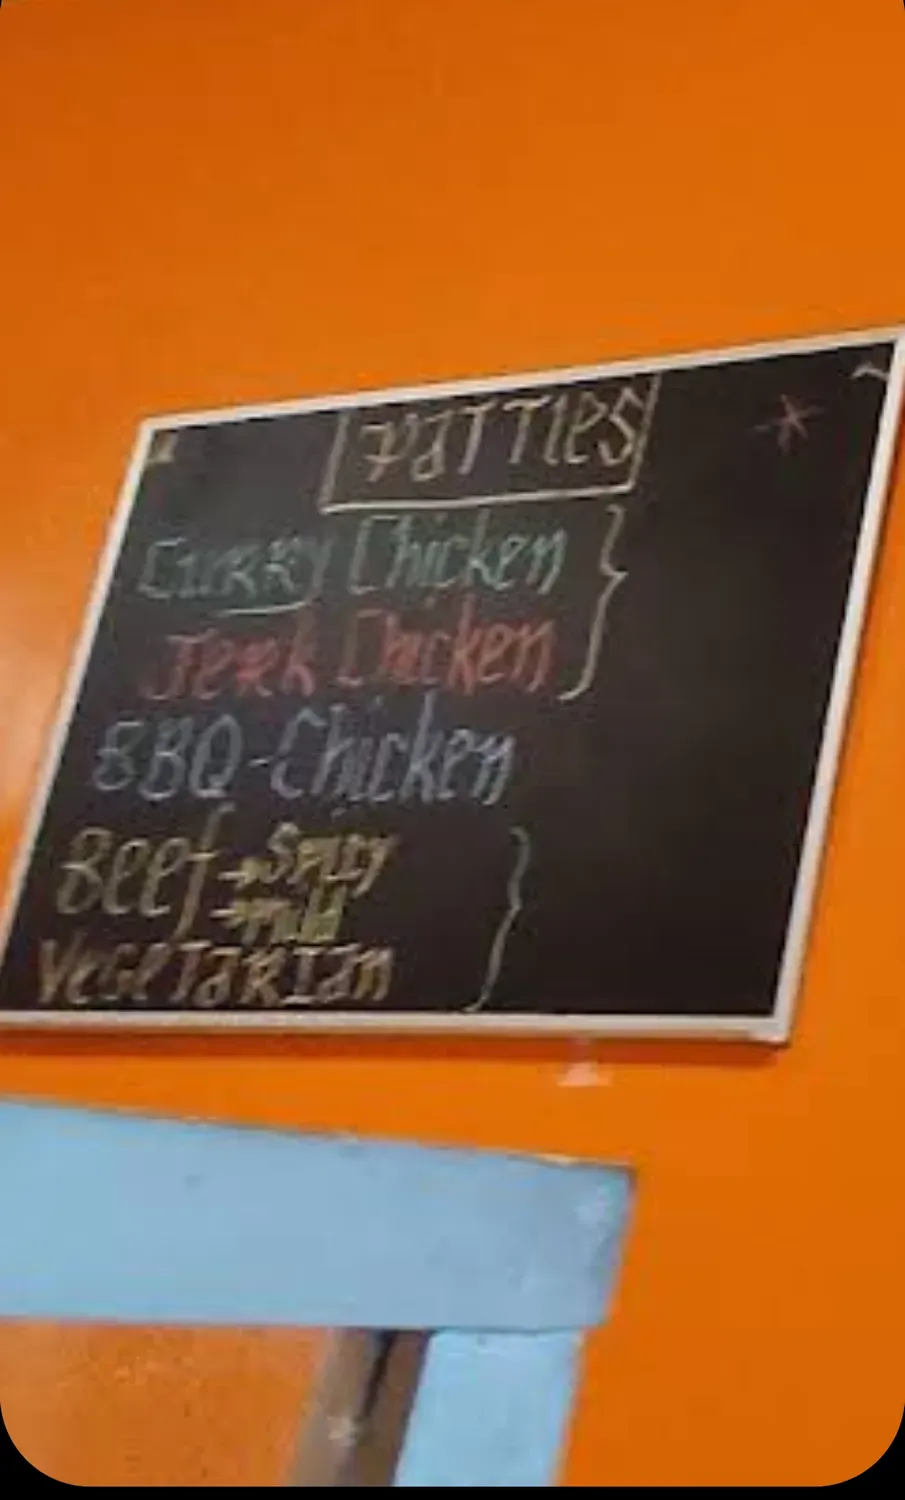 PaTTIeS
Curry Chicken
Jerk Chicken
BBQ-Chicken
Beef → Spicy
→ Mild
VegeTaRIan